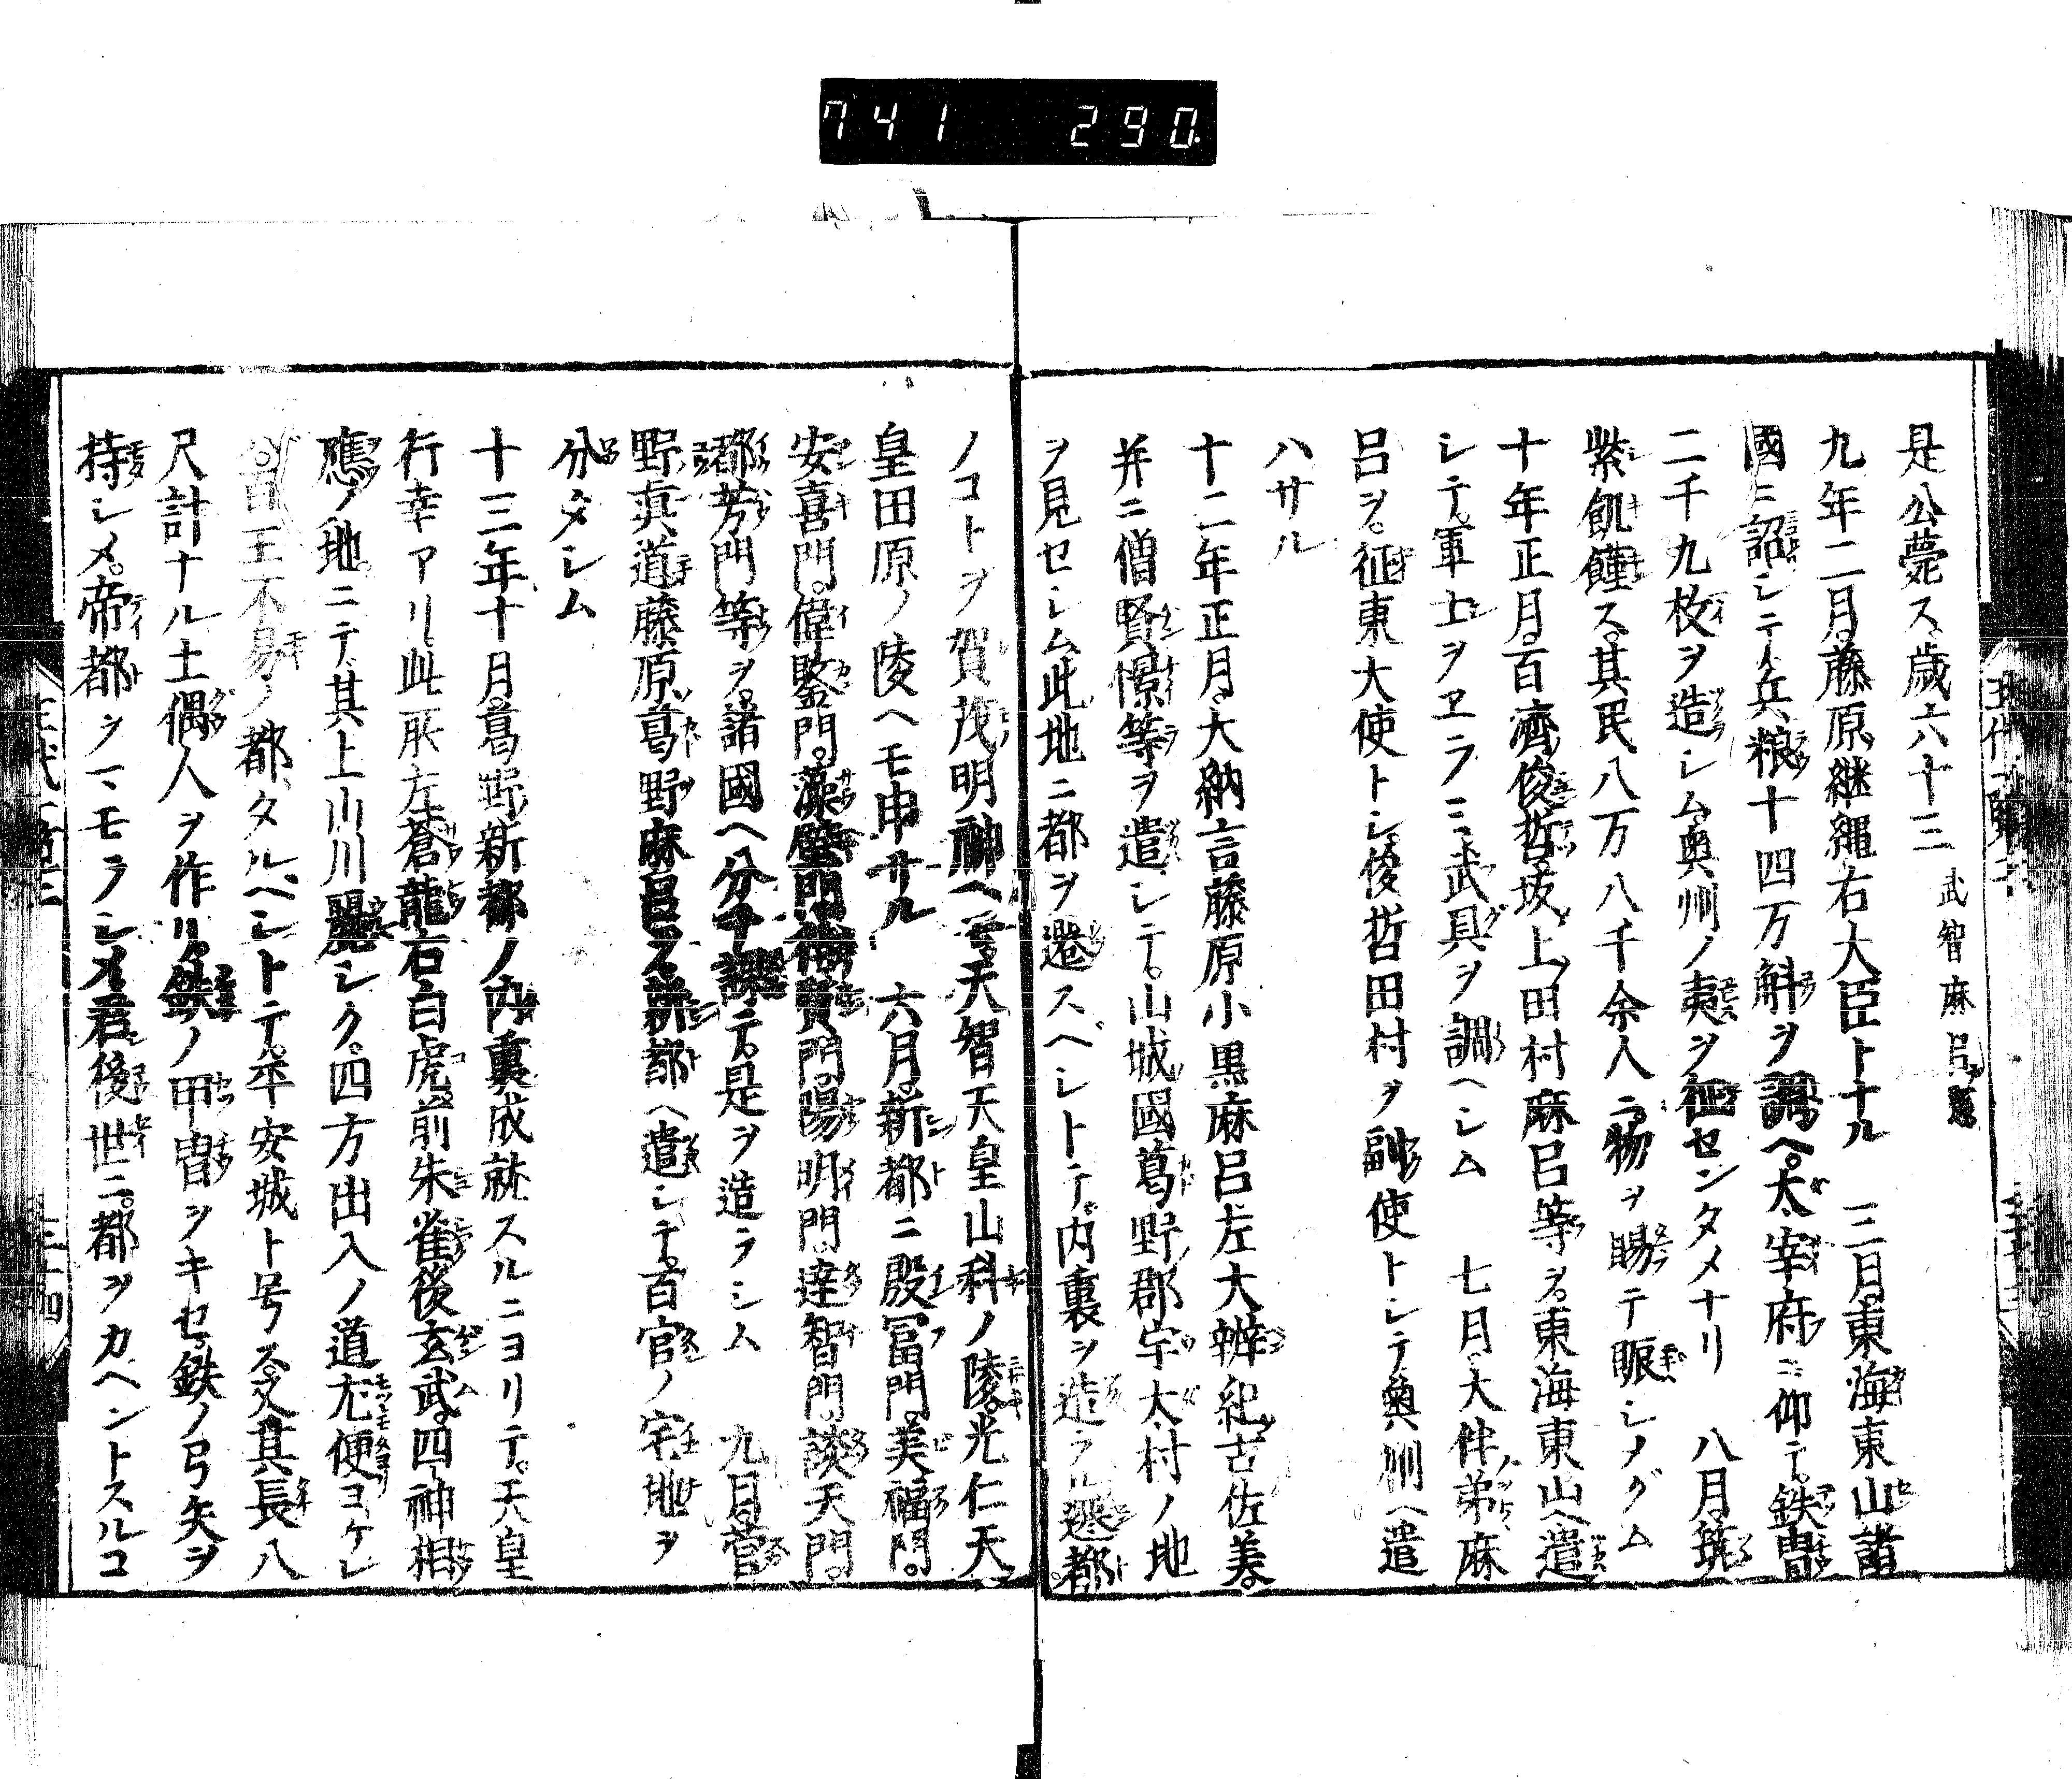 741 290
是公薨ス歳六十三 武智麻呂
九年二月。藤原継縄右大臣トナル 三月。東海東山諸
國ニ詔シテ兵粮十四万斛ヲ調ヘ。太宰府ニ仰テ。鉄冑
二千九枚ヲ造シム奥州ノ夷ヲ征センタメナリ 八月。筑
紫飢饉ス。其民八万八千余人ニ物ヲ賜テ賑シノグム
十年正月。百濟俊哲。坂上田村麻呂等ヲ。東海東山ヘ遣
シテ。軍士ヲヱラミ武具ヲ調ヘシム 七月。大伴弟麻
呂ヲ。征東大使トシ俊哲田村ヲ副使トシテ奥州ヘ遣
ハサル
十二年正月。大納言藤原小黒麻呂左大辨紀古佐美。
并ニ僧賢憬等ヲ遣シテ。山城國葛野郡宇太村ノ地
ヲ見セシム此地ニ都ヲ遷スベシトテ。内裏ヲ造ラル遷都
ノコトヲ賀茂明神ヘ告。天智天皇山科ノ陵。光仁天
皇田原ノ陵ヘモ申サル 六月。新都ニ殷冨門。美福門。
安喜門。偉鑒門。藻壁門。待賢門。陽明門。達智門。談天門。
郁芳門等ヲ。諸國ヘ分チ課テ。是ヲ造ラシム 九月。菅
野眞道藤原葛野麻呂ヲ新都ヘ遣シテ。百官ノ宅地ヲ
分タシム
十三年十月。葛野新都ノ内裏成就スルニヨリテ。天皇
行幸アリ。此所左蒼龍右白虎前朱雀後玄武。四神相
應ノ地ニテ。其上山川麗シク。四方出入ノ道尤便ヨケレ
百王不易ノ都タルベシトテ。平安城ト号ス。又其長八
尺計ナル土偶人ヲ作リ。鉄ノ甲冑ヲキセ。鉄ノ弓矢ヲ
持シメ。帝都ヲマモラシメ。若後世ニ。都ヲカヘントスルコ